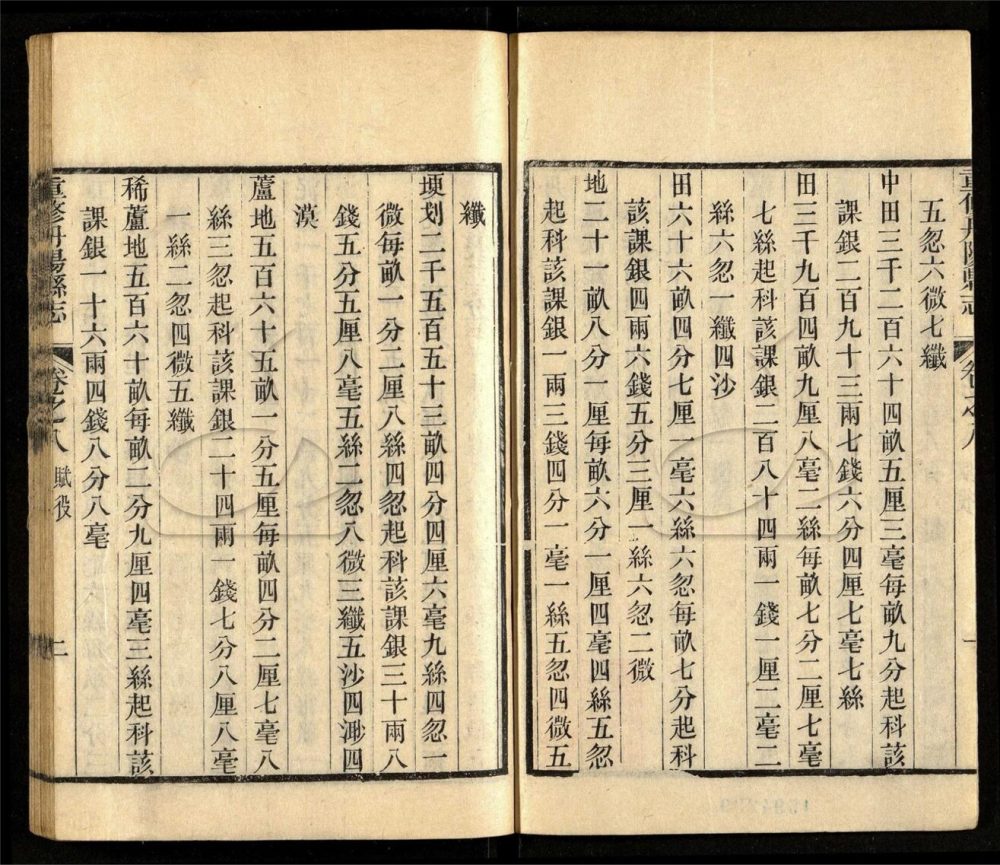 重修丹陽縣志
卷之八
一
五忽六微七纖
中田三千二百六十四畝五厘三毫每畝九分起科該
課銀二百九十三兩七錢六分四厘七毫七絲
田三千九百四畝九厘八毫二絲每畝七分二厘七毫
七絲起科該課銀二百八十四兩一錢一厘二毫二
絲六忽一纖四沙
田六十六畝四分七厘一毫六絲六忽每畝七分起科
該課銀四兩六錢五分三厘一絲六忽二微
地二十一畝八分一厘每畝六分一厘四毫四絲五忽
起科該課銀一兩三錢四分一毫一絲五忽四微五
纖
堧划二千五百五十三畝四分四厘六毫九絲四忽一
微每畝一分二厘八絲四忽起科該課銀三十兩八
錢五分五厘八毫五絲二忽八微三纖五沙四渺四
漠
蘆地五百六十五畝一分五厘每畝四分二厘七毫八
絲三忽起科該課銀二十四兩一錢七分八厘八毫
一絲二忽四微五纖
稀蘆地五百六十畝每畝二分九厘四毫三絲起科該
課銀一十六兩四錢八分八毫
重修丹陽縣志
卷之八
賦役
二